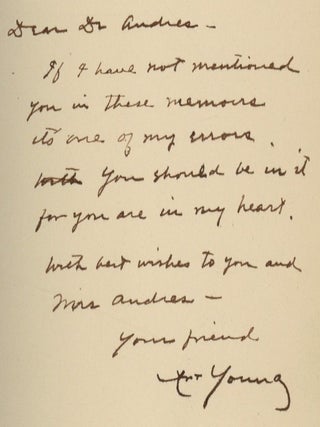 Dear Dr Andres –
If I have not mentioned
you in these memoirs
it's one of my errors.
with You should be in it
for you are in my heart.
With best wishes to you and
Mrs Andres –
Your friend
Young